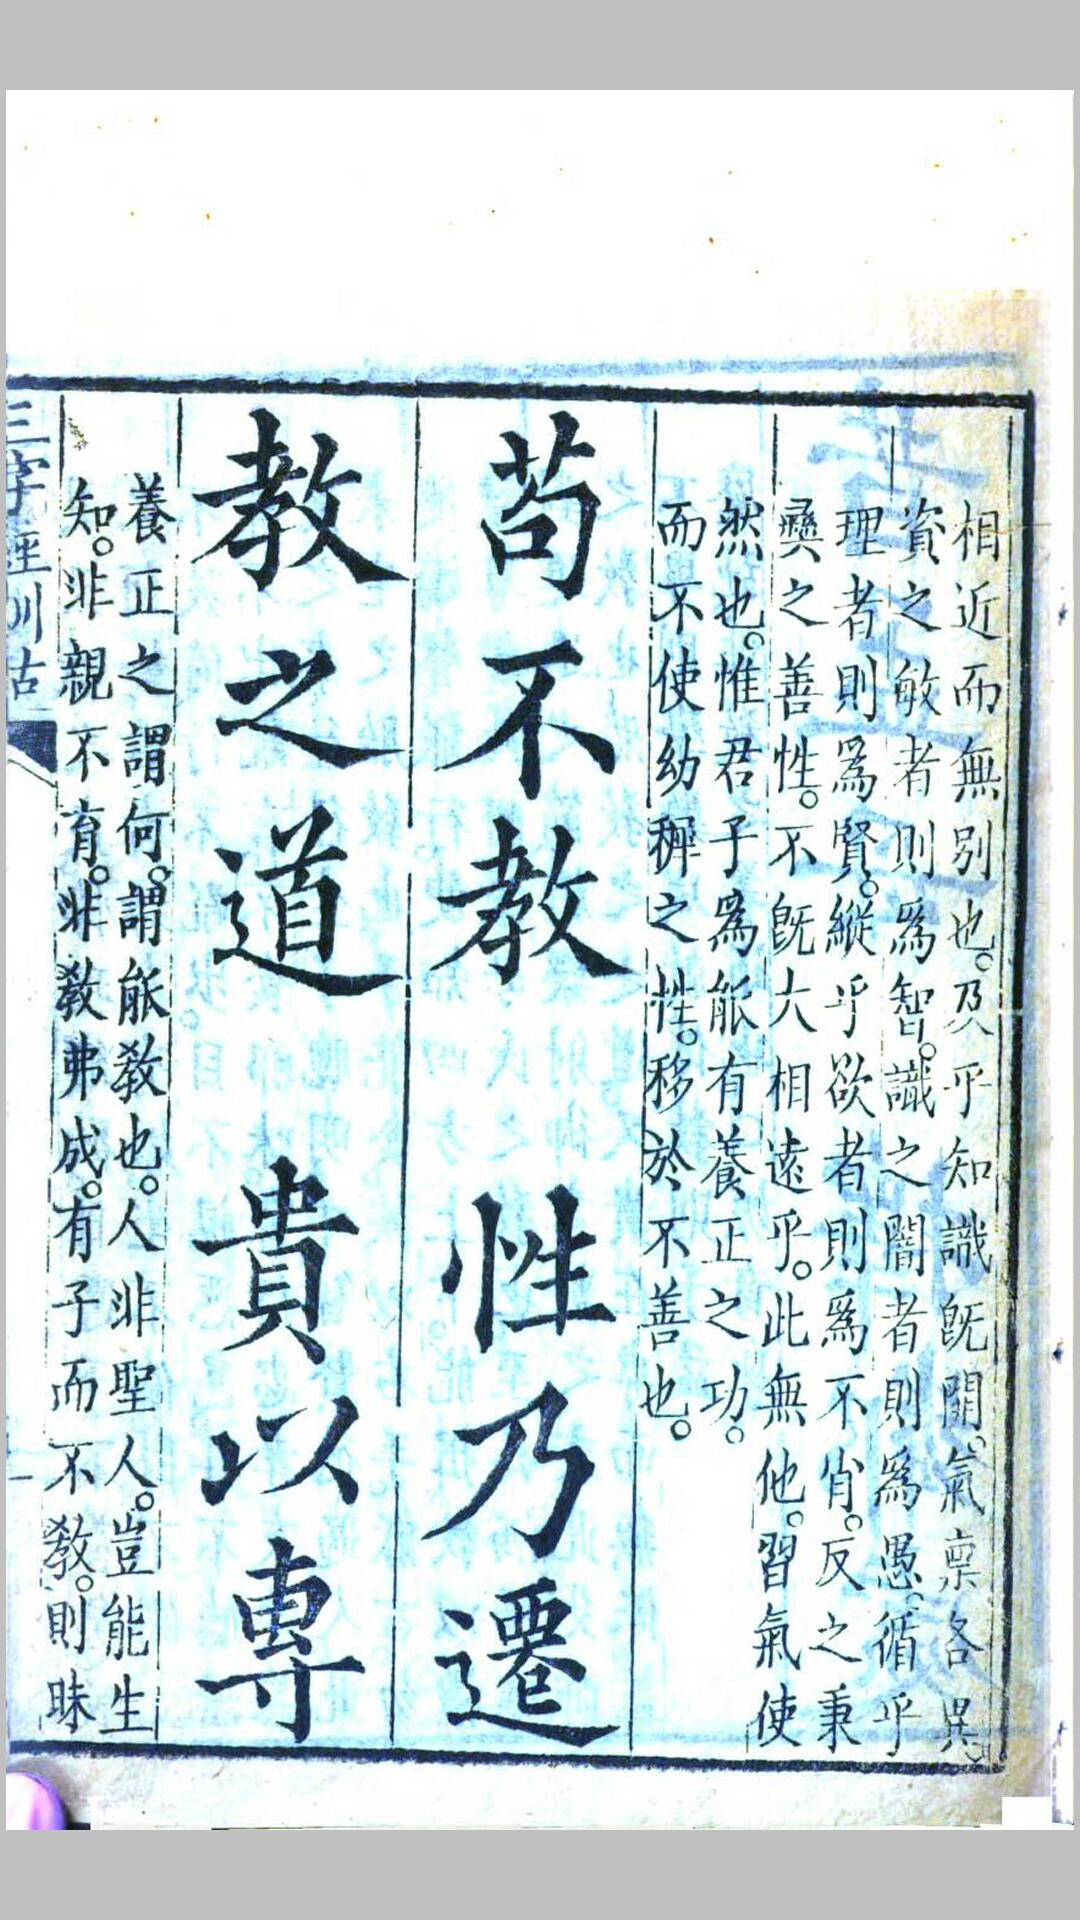 相近而無別也。及乎知識旣開。氣稟各異。
資之敏者則爲智。識之闇者則爲愚。循乎
理者則爲賢。縱乎欲者則爲不肖。反之秉
彝之善性。不旣大相遠乎。此無他。習氣使
然也。惟君子爲能有養正之功。
而不使幼穉之性。移於不善也。
苟不教　性乃遷
教之道　貴以專
養正之謂何。謂能敎也。人非聖人。豈能生
知。非親不育。非敎弗成。有子而不敎。則昧
三字經訓詁